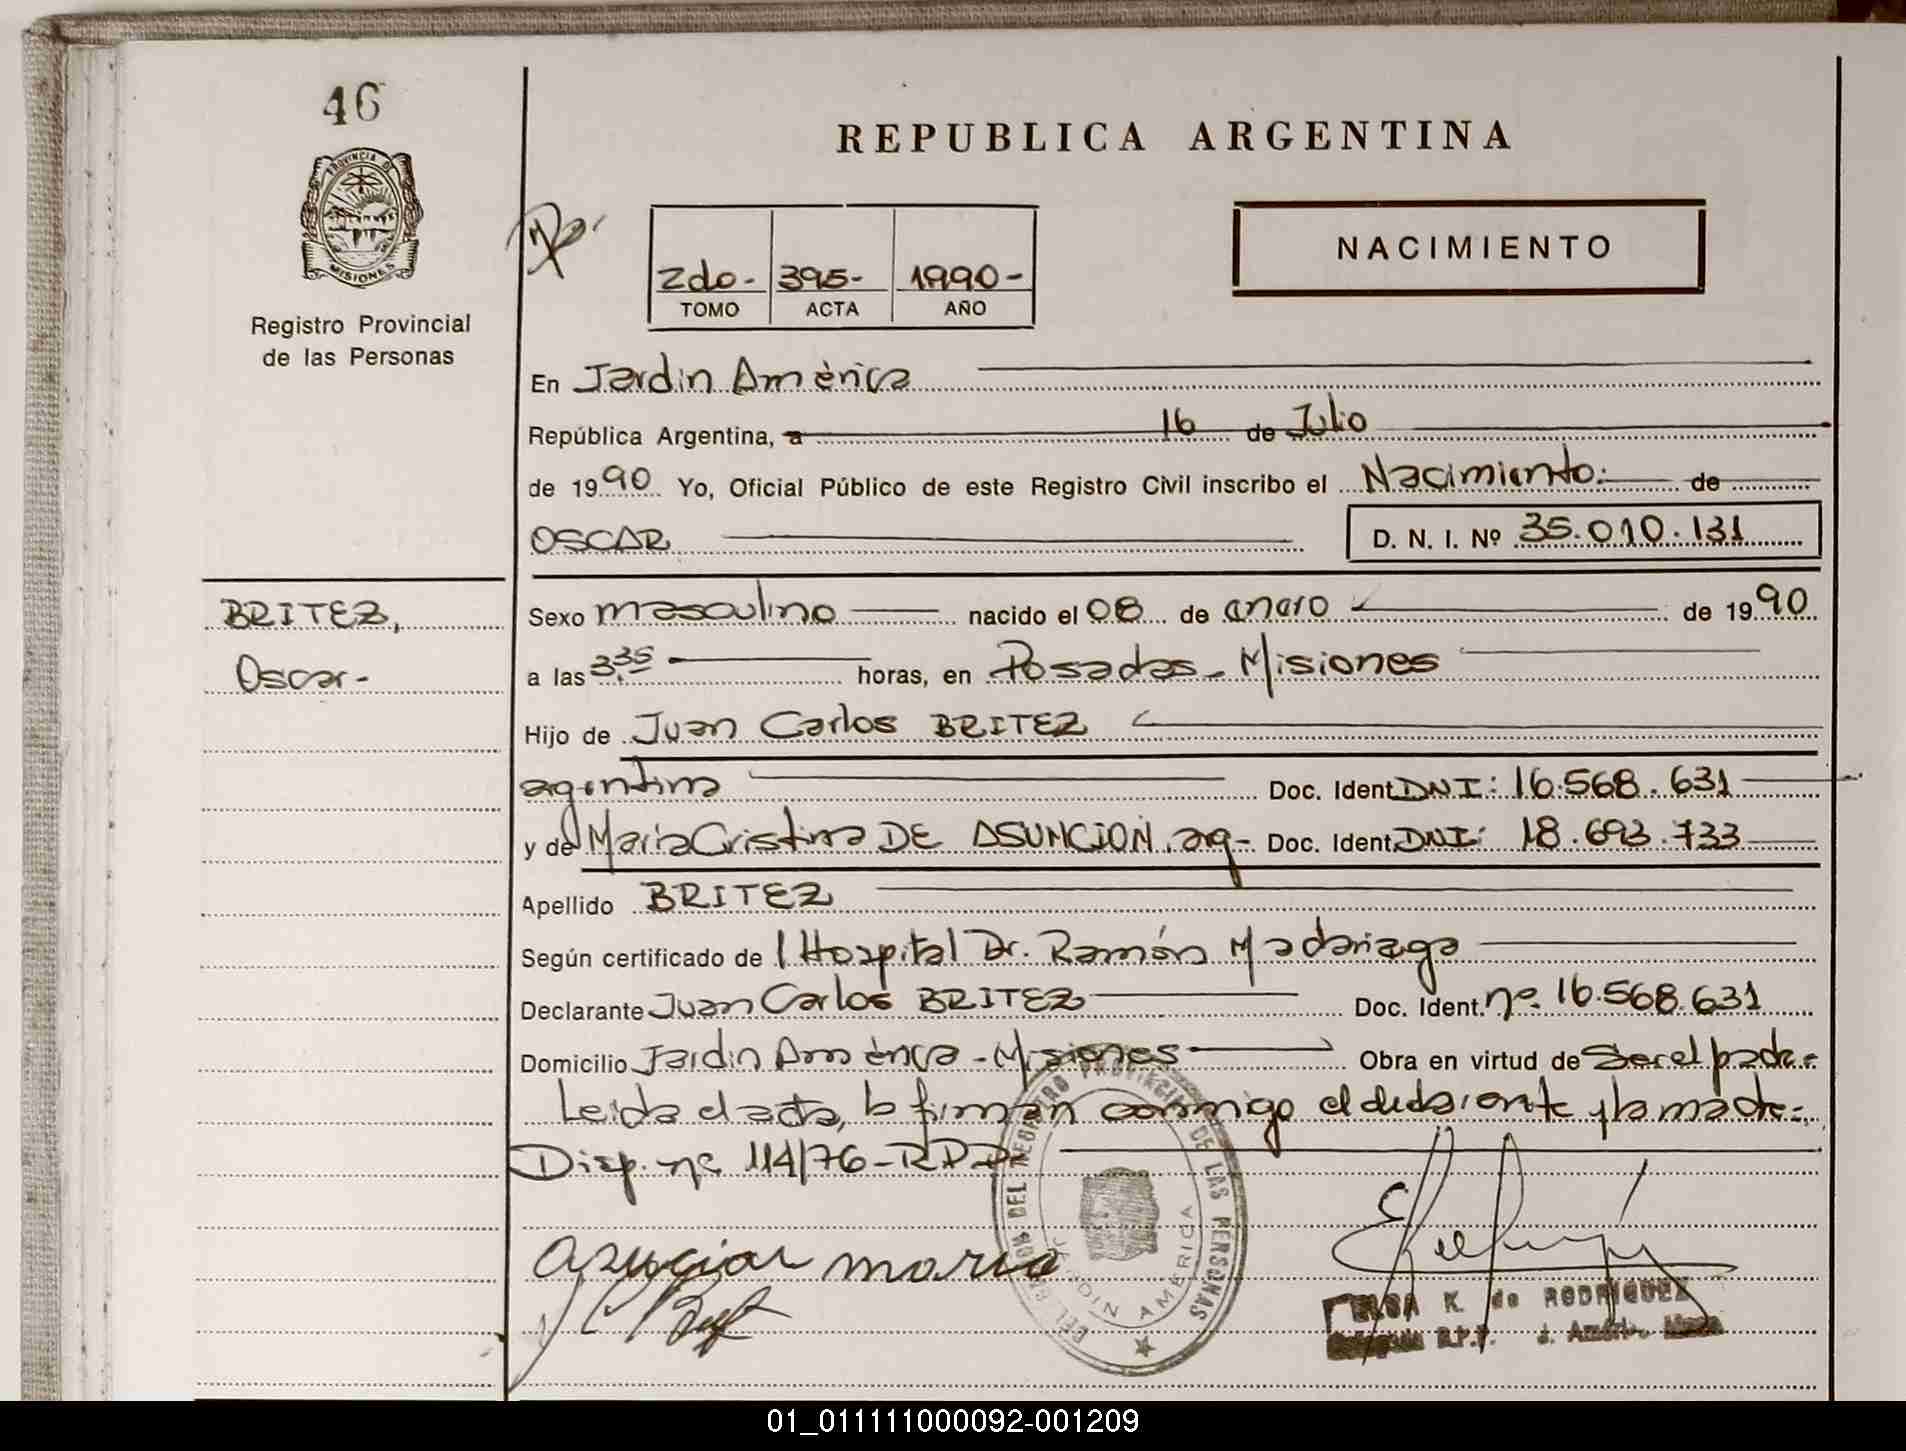 46
PROVINCIA DE
MISIONES
Registro Provincial
de las Personas
REPUBLICA ARGENTINA
NACIMIENTO
2do- 395- 1990-
TOMO ACTA AÑO
En Jardin América
República Argentina, a 16 de Julio
de 1990 Yo, Oficial Público de este Registro Civil inscribo el Nacimiento: de
OSCAR D. N. I. Nº 35.010.131
BRITEZ,
Oscar-
Sexo masculino nacido el 08 de enero de 1990
a las 3,35 horas, en Posadas - Misiones
Hijo de Juan Carlos BRITEZ
argentino Doc. Ident. DNI: 16.568.631
y de María Cristina DE ASUNCION, arg- Doc. Ident. DNI: 18.693.733
Apellido BRITEZ
Según certificado del Hospital Dr. Ramón Madariaga
Declarante Juan Carlos BRITEZ Doc. Ident. nº 16.568.631
Domicilio Jardin América - Misiones Obra en virtud de Ser el padre
Leida el acta, lo firman conmigo el declarante y la madre-
Disp. nº 114/76-RPP-
DEL REGISTRO PROVINCIAL DE LAS PERSONAS
JARDIN AMERICA
asuncion maria
ELSA K. de RODRIGUEZ
R.P.P. J. América
01_011111000092-001209